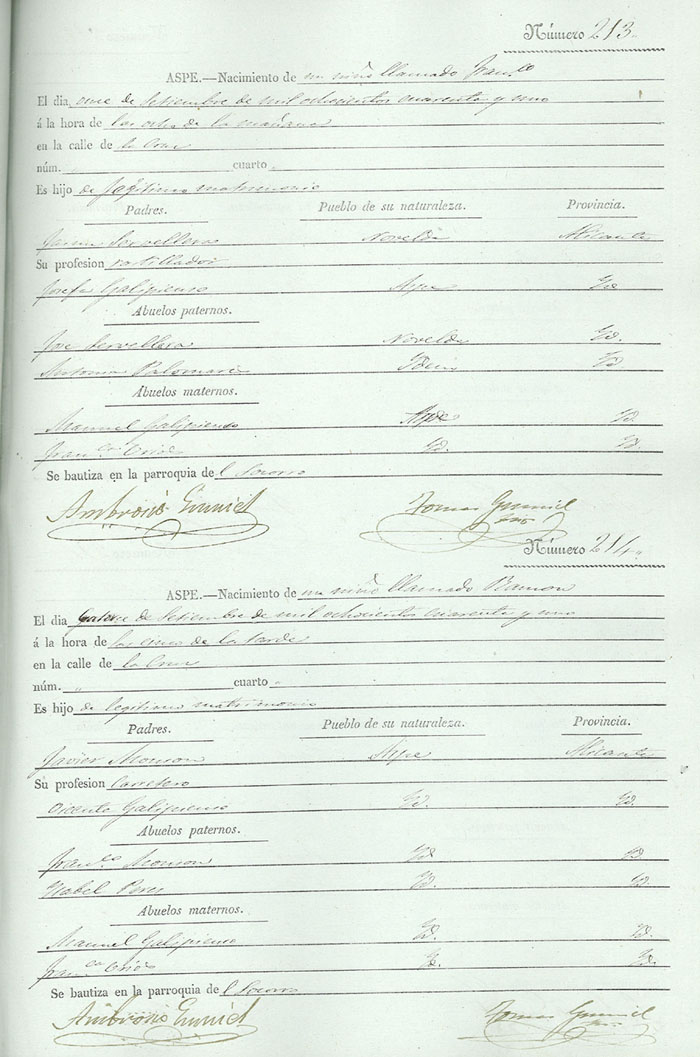 Número 213.
ASPE.—Nacimiento de un niño llamado Fran.co
El dia once de Setiembre de mil ochocientos cuarenta y uno
á la hora de las ocho de la mañana
en la calle de la Cruz
núm. cuarto
Es hijo de legitimo matrimonio
Padres. Pueblo de su naturaleza. Provincia.
Novelda Alicante
Su profesion rastillador
Josefa Galipienso Aspe Yd.
Abuelos paternos.
Jose Cervellera Novelda Yd.
Antonia Palomares Ydem Yd.
Abuelos maternos.
Manuel Galipienso Aspe Yd.
Fran.ca Yd. Yd.
Se bautiza en la parroquia del Socorro
Ambrosio Tomas
Número 214.
ASPE.—Nacimiento de un niño llamado Ramon
El dia catorce de Setiembre de mil ochocientos cuarenta y uno
á la hora de las cinco de la tarde
en la calle de la Cruz
núm. " cuarto "
Es hijo de legitimo matrimonio
Padres. Pueblo de su naturaleza. Provincia.
Javier Monzon Aspe Alicante
Su profesion Carretero
Vicenta Galipienso Yd. Yd.
Abuelos paternos.
Fran.co Monzon Yd. Yd.
Ysabel Peres Yd. Yd.
Abuelos maternos.
Manuel Galipienso Yd. Yd.
Fran.ca Yd. Yd.
Se bautiza en la parroquia del Socorro
Ambrosio Tomas